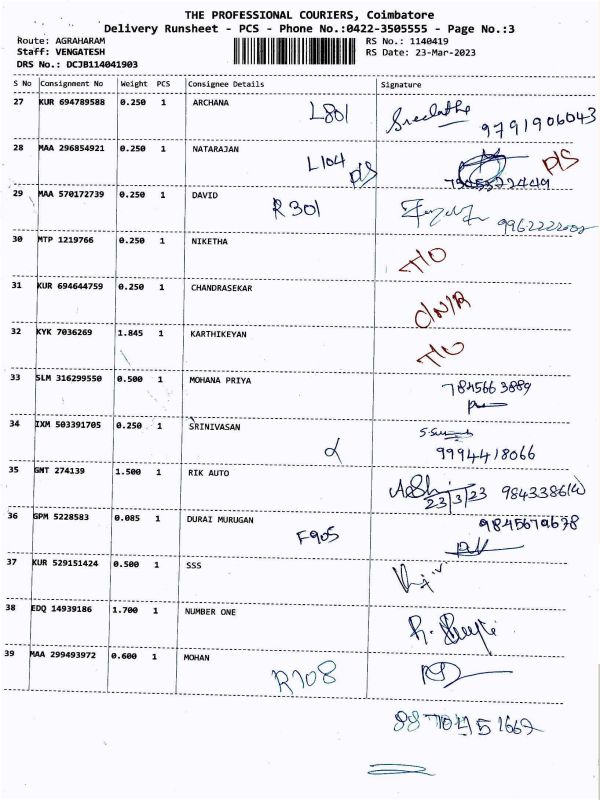 THE PROFESSIONAL COURIERS, Coimbatore
Delivery Runsheet - PCS - Phone No.:0422-3505555 - Page No.:3
Route: AGRAHARAM RS No.: 1140419
Staff: VENGATESH RS Date: 23-Mar-2023
DRS No.: DCJB114041903
S No Consignment No Weight PCS Consignee Details Signature
27 KUR 694789588 0.250 1 ARCHANA L801 Sreelatha
9791906043
28 MAA 296854921 0.250 1 NATARAJAN L104 P/S P/S
29 MAA 570172739 0.250 1 DAVID R301
30 MTP 1219766 0.250 1 NIKETHA T/O
31 KUR 694644759 0.250 1 CHANDRASEKAR C/N/R
32 KYK 7036269 1.845 1 KARTHIKEYAN T/O
33 SLM 316299550 0.500 1 MOHANA PRIYA 7845663889
34 IXM 503391705 0.250 1 SRINIVASAN
9994418066
35 GNT 274139 1.500 1 RIK AUTO
23/3/23
36 GPM 5228583 0.085 1 DURAI MURUGAN F905
37 KUR 529151424 0.500 1 SSS
38 EDQ 14939186 1.700 1 NUMBER ONE
39 MAA 299493972 0.600 1 MOHAN R708